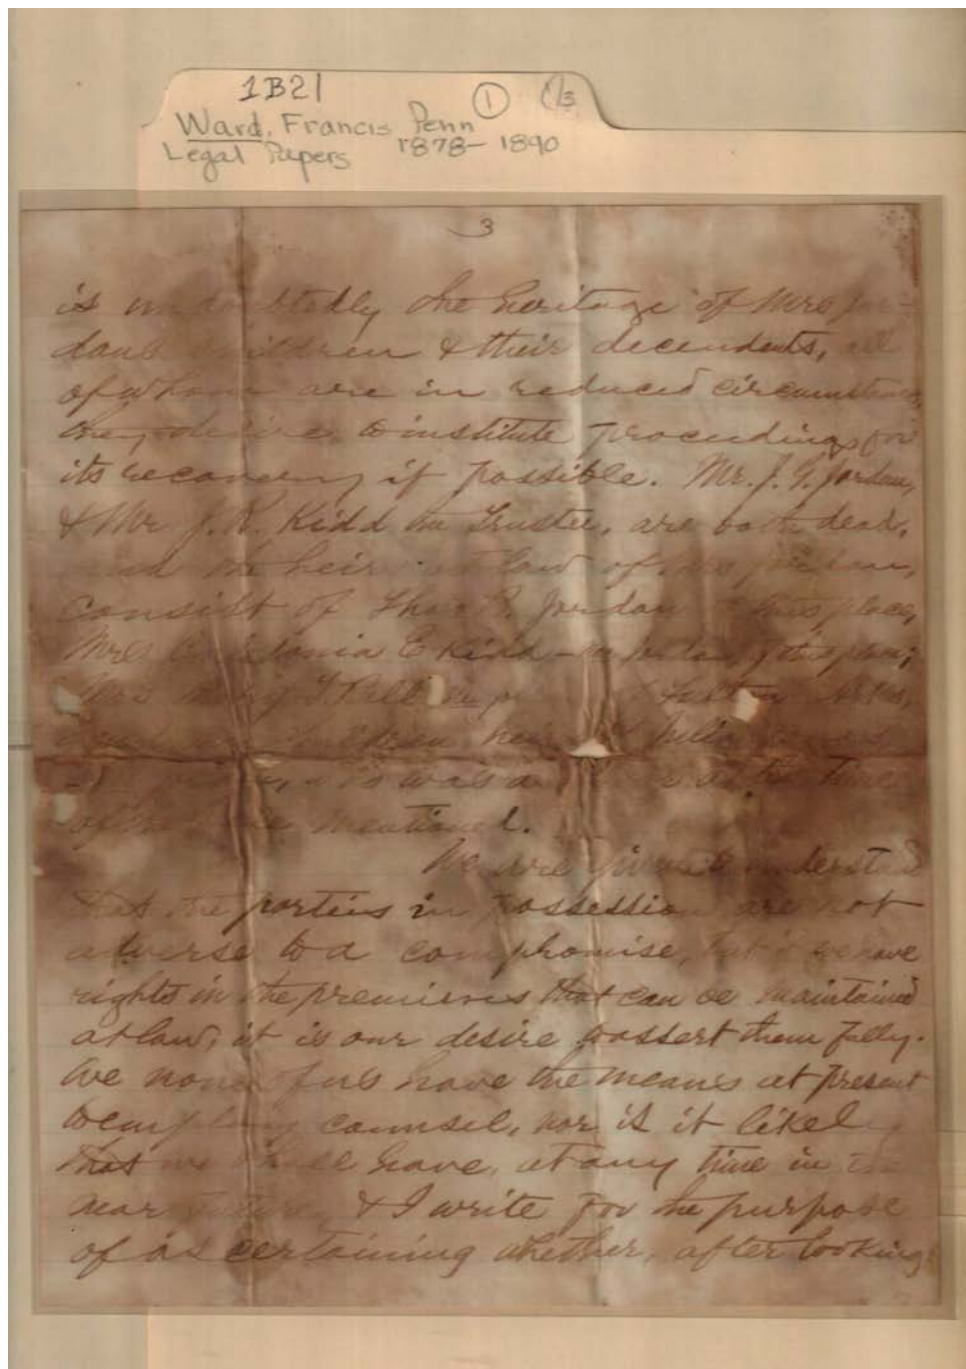 1B21
1 13
Ward, Francis Penn
Legal Papers 1878-1890
3
is undoubtedly the heritage of Mrs Jor-
dans children & their decendents, all
of whom are in reduced circumstances,
they desire to institute proceedings for
its recovery if possible. Mr. J. T. Jordan,
& Mr J. R. Kidd the Trustee, are both dead,
and the heirs at law of Mrs Jordan,
consist of Thos. Jordan of this place,
Mrs E Kidd
Mrs Mary
was a
of the mentioned.
We are given to understand
that the parties in possession are not
adverse to a compromise, but if we have
rights in the premises that can be maintained
at law, it is our desire to assert them fully.
We none of us have the means at present
to employ counsel, nor is it likely
that we shall have, at any time in the
near future, & I write for the purpose
of ascertaining whether, after looking